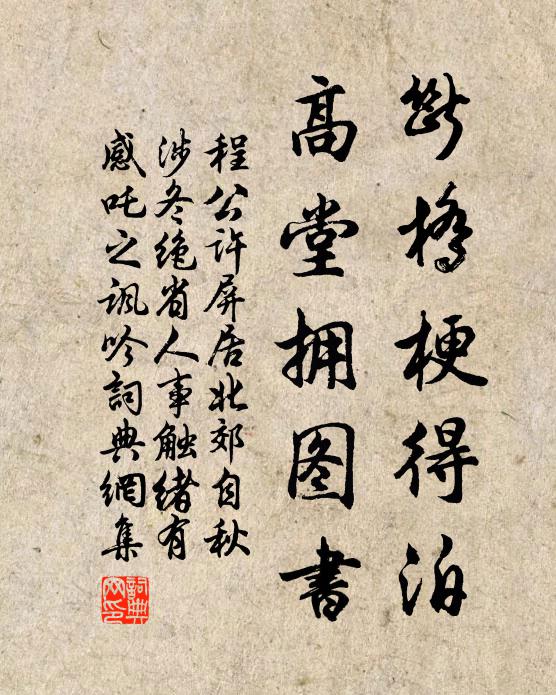 斷桥梗得泊
高堂拥图書
程公许屏居北郊自秋
涉冬绝省人事触绪有
感吒之讽吟詞典網集
詞典
网印